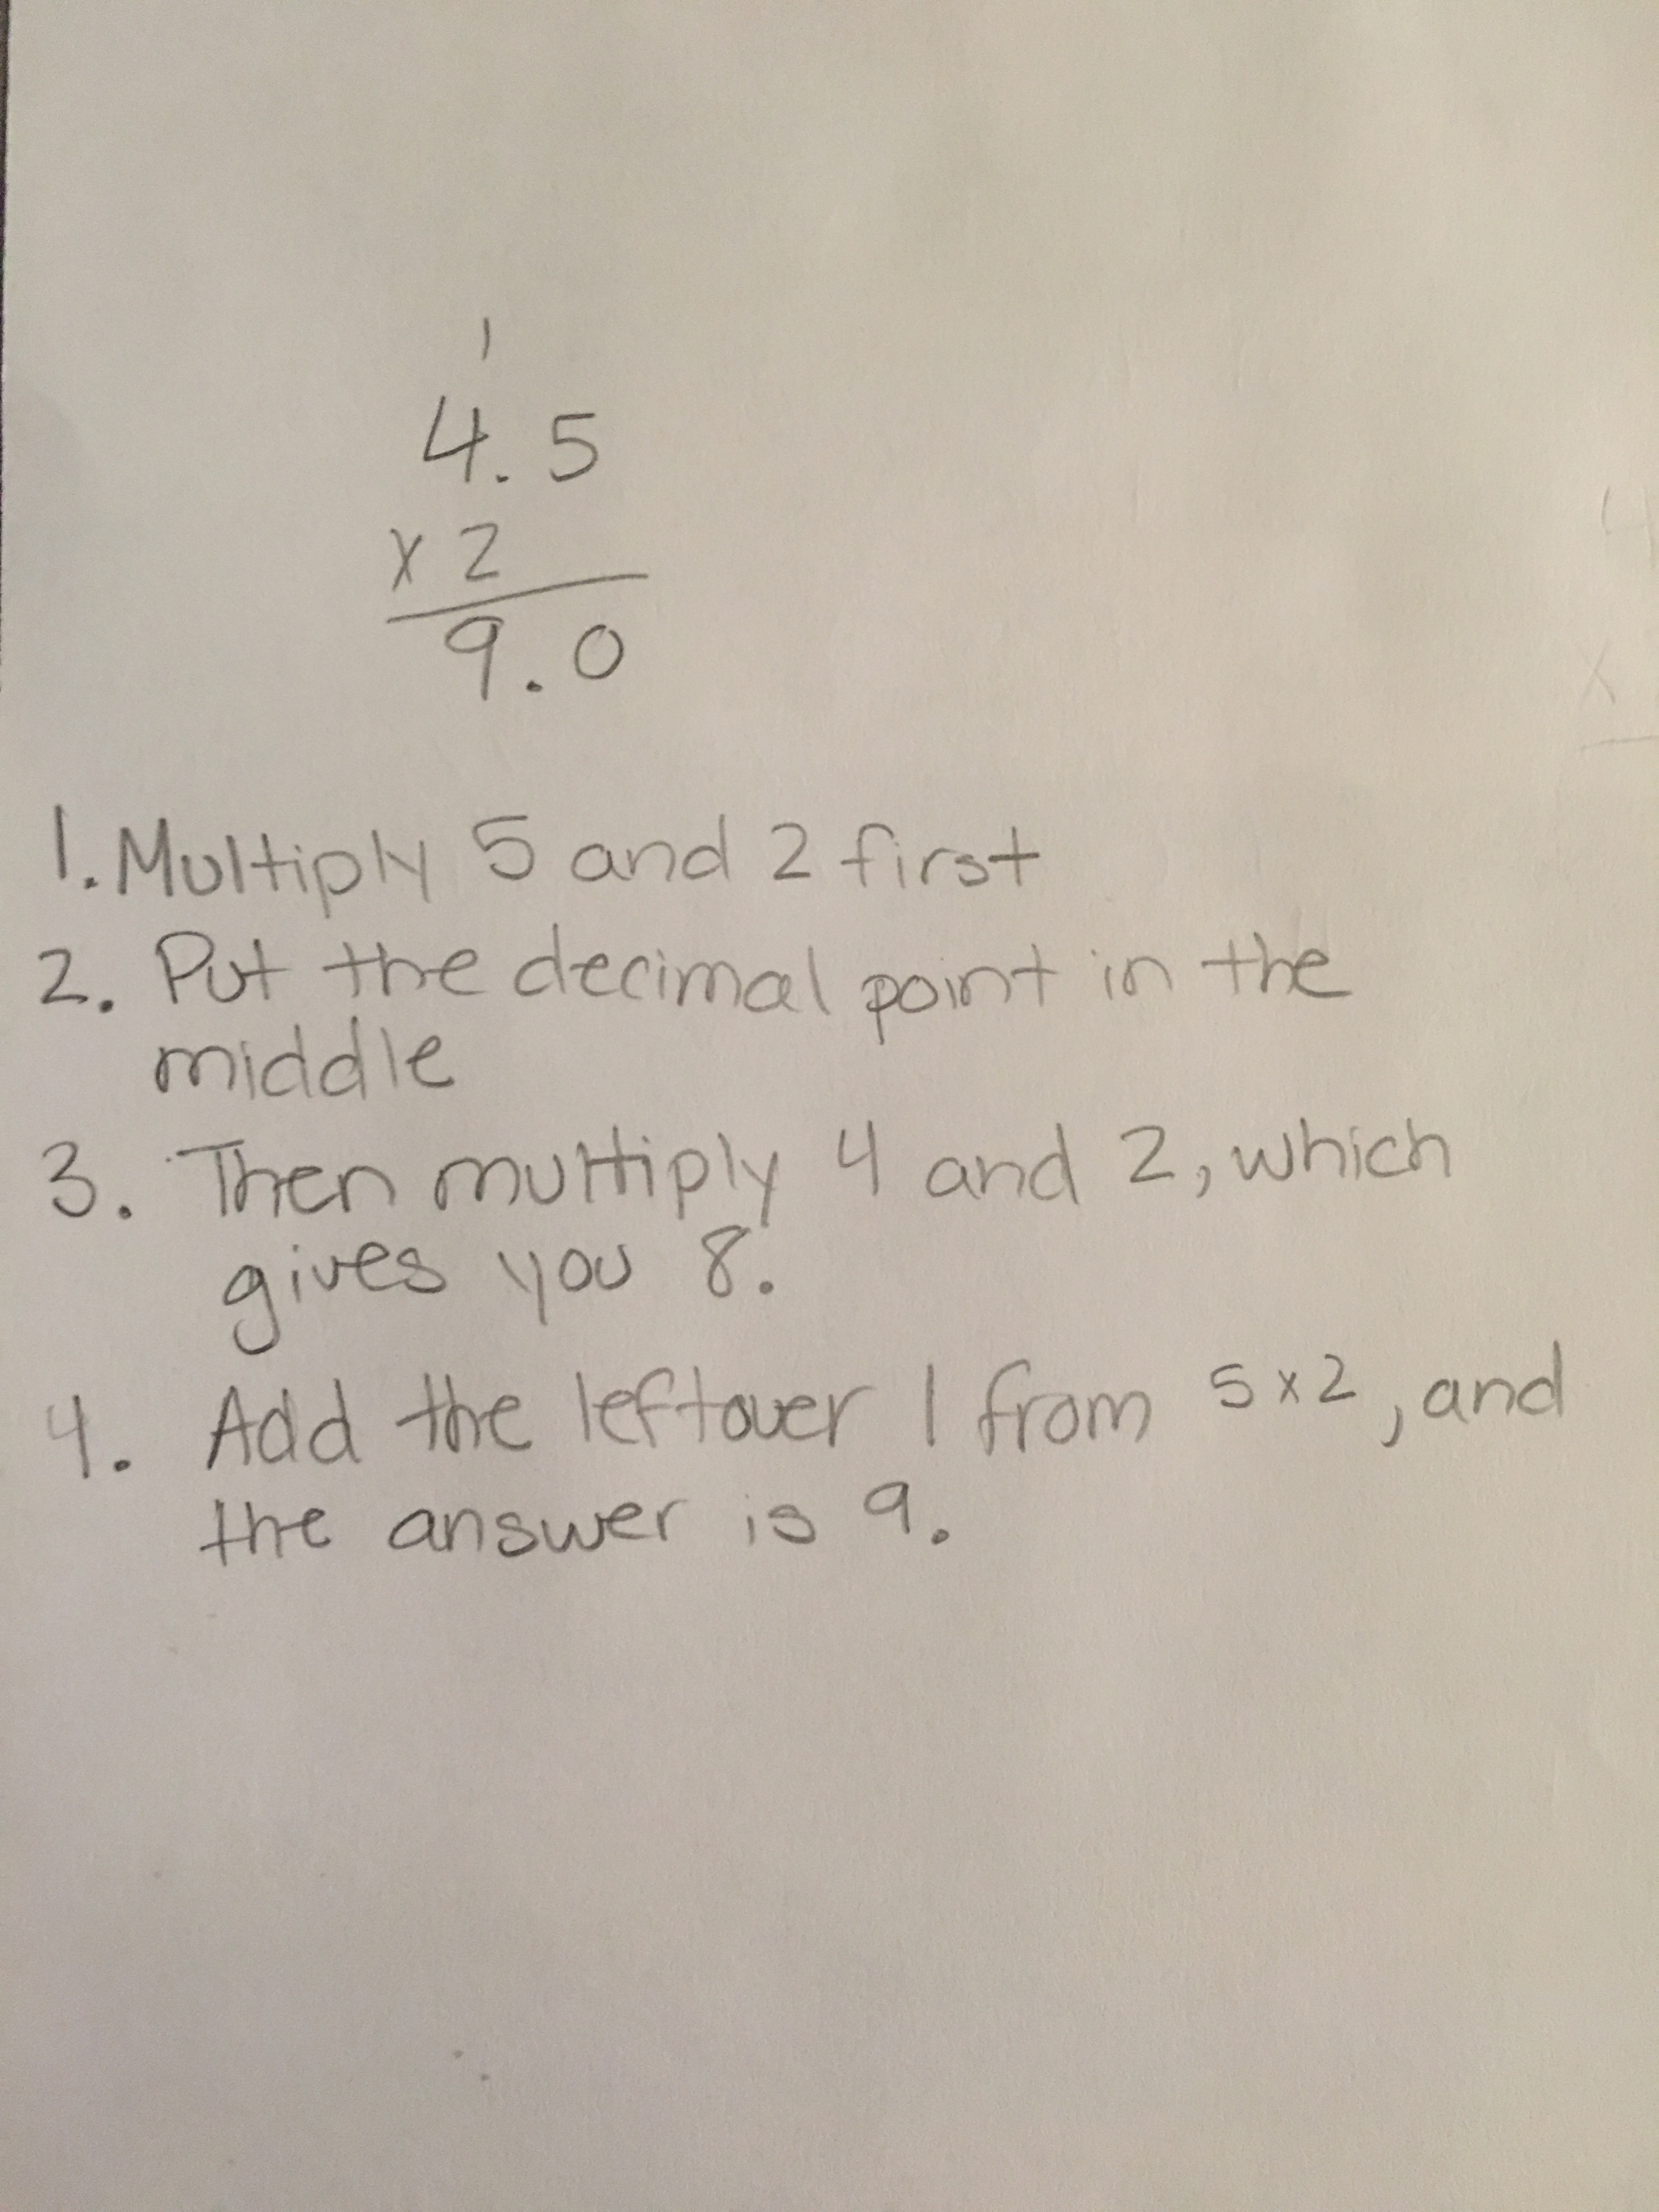 1
4.5
x 2
9.0
1. Multiply 5 and 2 first
2. Put the decimal point in the
middle
3. Then multiply 4 and 2, which
gives you 8.
4. Add the leftover 1 from 5x2, and
the answer is 9.
4
x